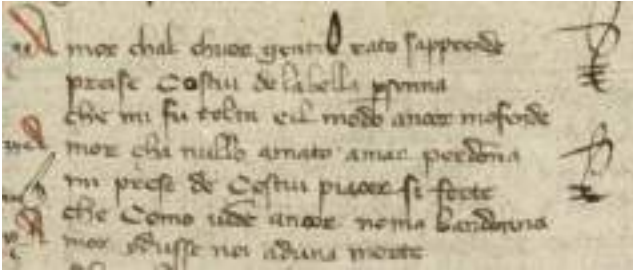 Amor chal chuor gentil rato sapprende
prese Costui de la bella psonna
che mi fu tolta eil modo ancor mofende
Amor cha nullo amato amar perdona
mi prese de Costui piacer si forte
che Como vedi ancor noma bandonna
Amor Condusse noi aduna morte